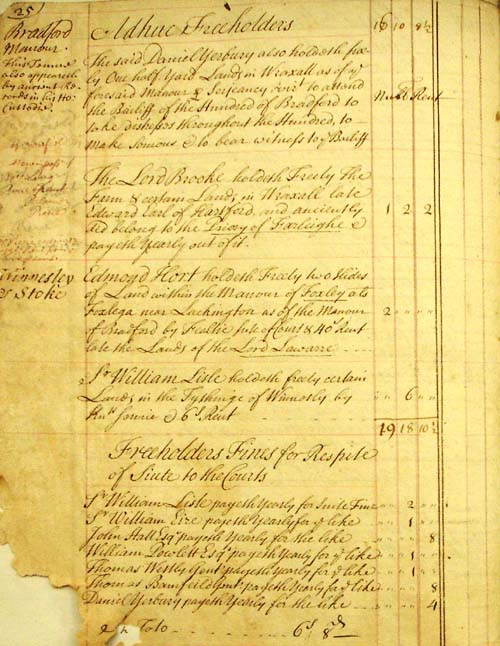 25
Bradford
Manour.
Adhuc Freeholders 18 10 8½
This Tennure
also appeareth
by ancient Re-
cords in his
Custodie.
The said Daniel Yerbury also holdeth free-
ly One half Yard Land in Wraxall as of ye
foresaid Manour & Serjeancy, vizt. to attend
the Bailiff of the Hundred of Bradford to
take distresses throughout the Hundred, to
make Somons & to bear witness to ye Bailiff
Null Rent
The Lord Brooke holdeth Freely the
Farm & certain Lands in Wraxall late
Edward Earl of Hartford, and anciently
did belong to the Priory of Farleighe &
payeth Yearly out of it. 1 2 2
Winnesley
& Stoke
Edmond Hort holdeth Freely two Hides
of Land within the Manour of Foxley als
Foxlega near Lackington as of the Manour
of Bradford by Fealtie sute of Court & 40s Rent
late the Lands of the Lord Lawarre 2 " "
Sr. William Lisle holdeth freely certain
Lands in the Tythinge of Winnesly by
Knts Servic & 6s Rent " 6 "
19 18 10½
Freeholders Fines for Respite
of Siute to the Courts
Sr William Lisle payeth Yearly for Suite Fine " 2 "
Sr William Eire payeth Yearly for ye like " 1 "
John Hall Esqr payeth Yearly for the like " " 8
William Powlett Esqr payeth Yearly for ye like " 1 "
Thomas Westly Gent payeth Yearly for ye like " 1 "
Thomas Bamfeild Gent payeth Yearly for ye like " " 8
Daniel Yerbury payeth Yearly for the like " " 4
Toto 6s 8d